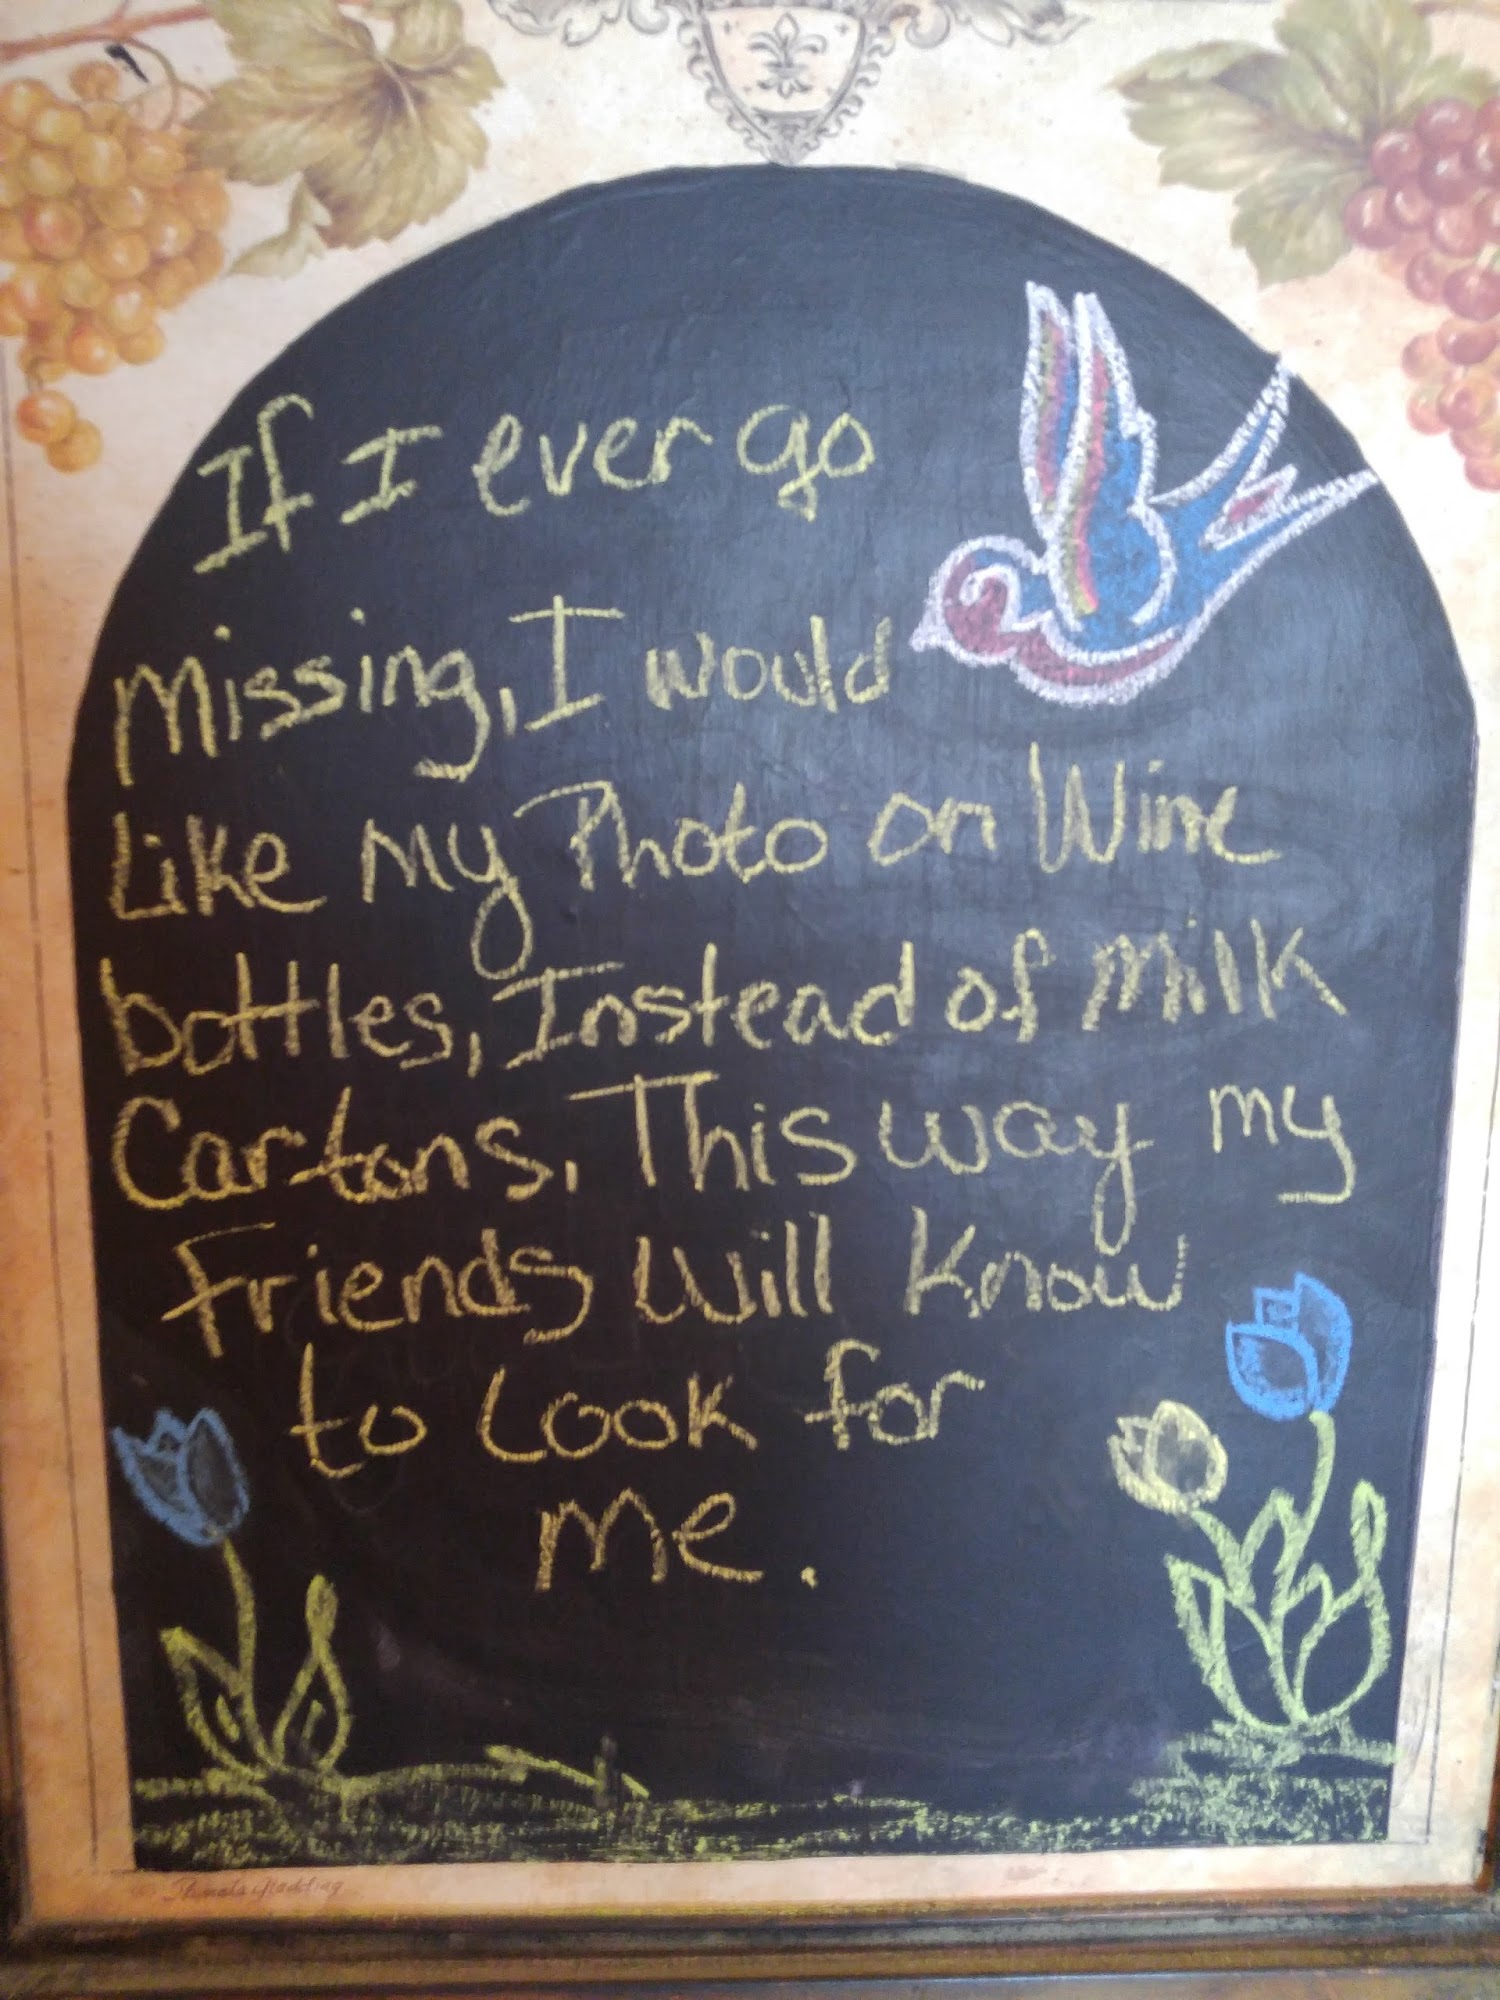 If I ever go
missing, I would
Like my Photo on Wine
bottles, Instead of milk
Cartons. This way my
Friends Will Know
to Look for
me.